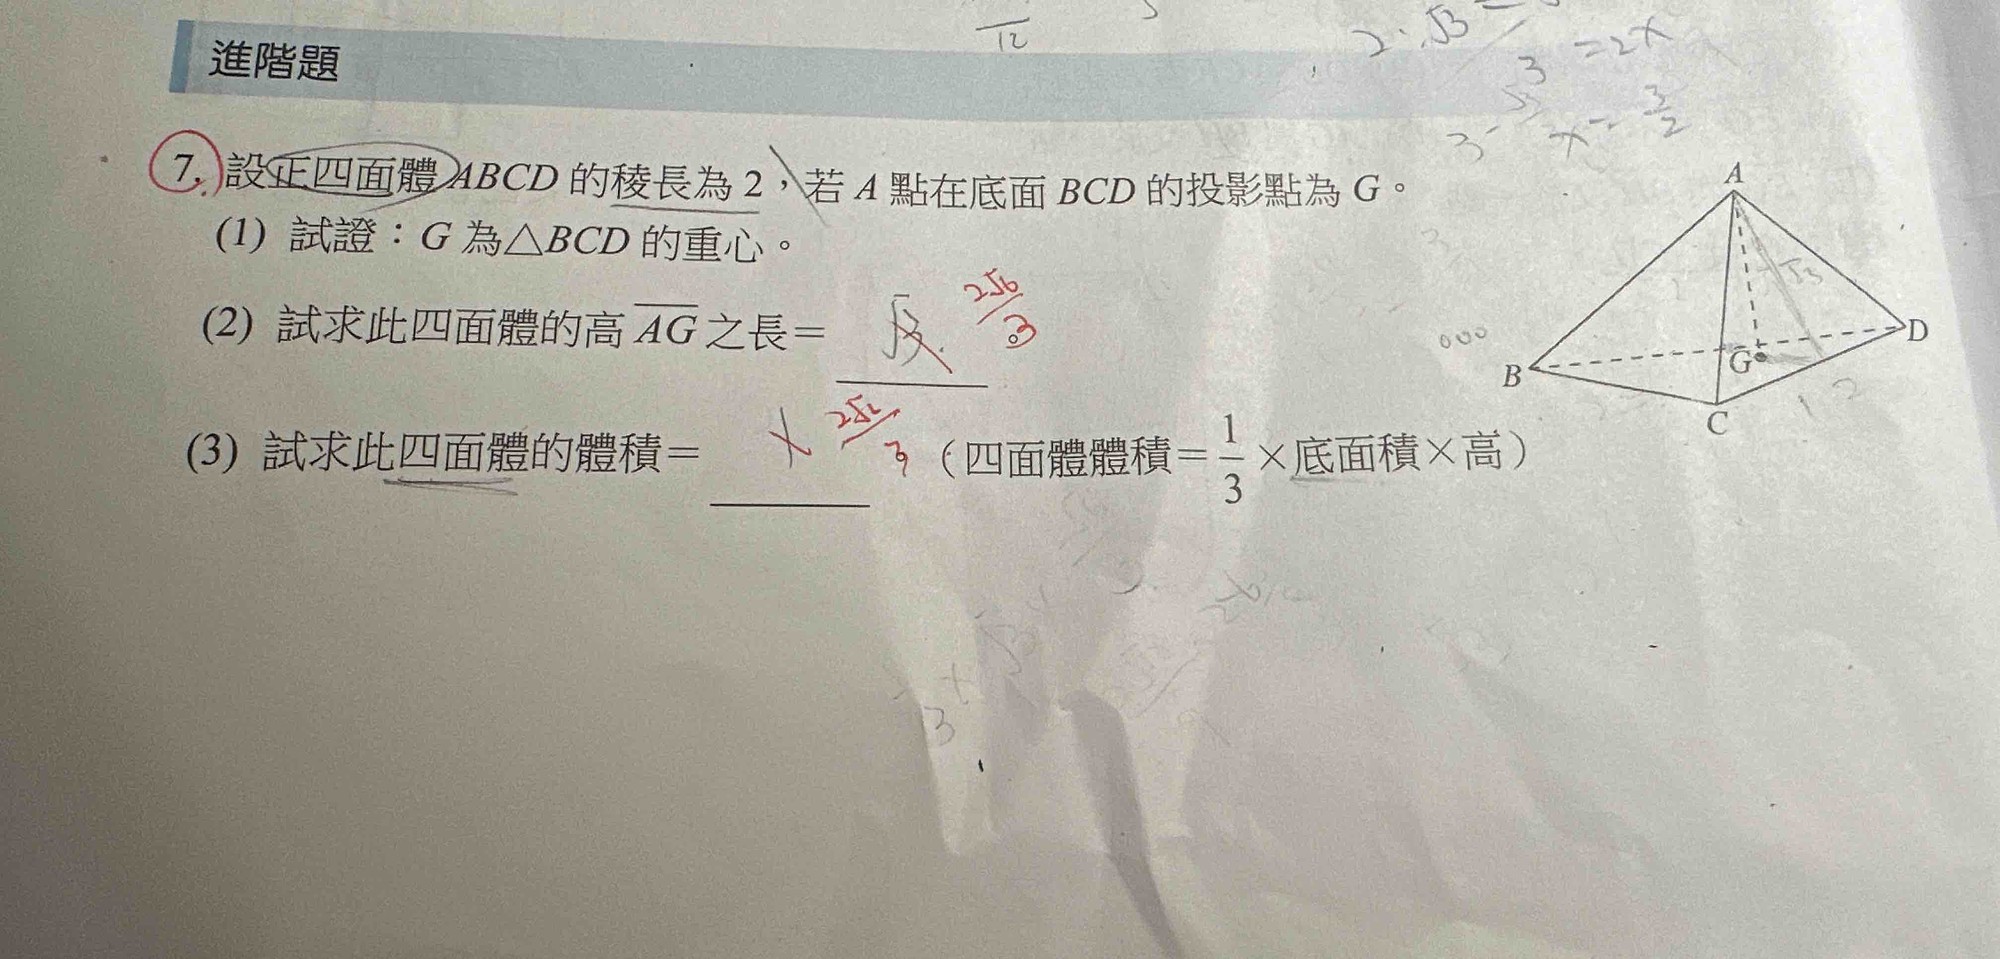 12
2·√3
3
=2x
x=3/2
進階題
7. 設正四面體ABCD 的稜長為 2,若 A 點在底面 BCD 的投影點為 G。
(1) 試證:G 為△BCD 的重心。
(2) 試求此四面體的高 AG 之長= √3 2√6/3
(3) 試求此四面體的體積= 2√2/3 (四面體體積=1/3×底面積×高)
A
√3
B
G
D
C
1
2
3